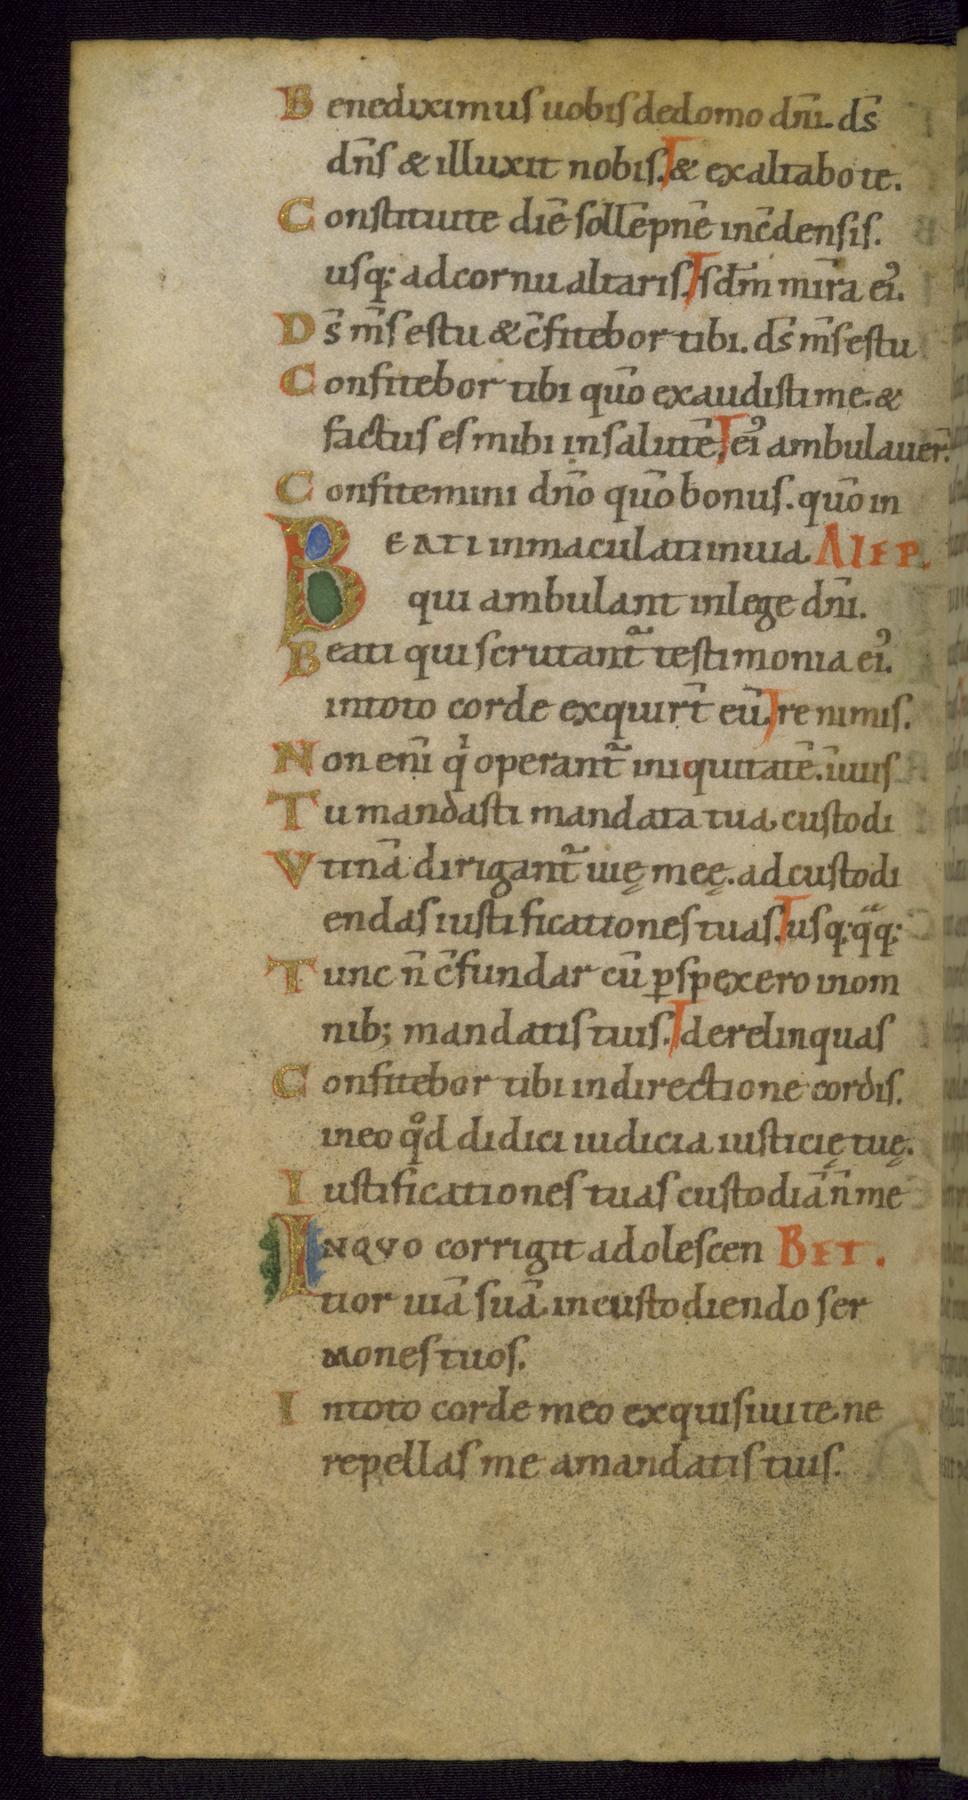 Benediximus uobis de domo dn̄i. ds̄
dn̄s & illuxit nobis. & exaltabo te.
Constituite diē sollēpnē in c̄densis.
usq; ad cornu altaris. sdm̄ mīra eiꝰ.
Ds̄ m̄s es tu & c̄fitebor tibi. ds̄ m̄s es tu
Confitebor tibi quō exaudisti me. &
factus es mihi in salutē. eiꝰ ambulauer̄.
Confitemini dn̄o quō bonus. quō in
BEATI inmaculati in uia ALEP.
qui ambulant in lege dn̄i.
Beati qui scrutant᷑ testimonia eiꝰ.
in toto corde exquirt̄ eū. re nimis.
Non enī qͥ operant᷑ iniquitatē. ī uiis
Tu mandasti mandata tua custodi
Vtinā dirigant᷑ uię meę. ad custodi
endas iustificationes tuas. usq; qᷓq;
Tunc n̄ c̄fundar cū ꝑspexero in om
nib; mandatis tuis. derelinquas
Confitebor tibi in directione cordis.
in eo qͦd didici iudicia iusticię tuę.
Iustificationes tuas custodiā n̄ me
INQVO corrigit adolescen BET.
tior uiā suā. in custodiendo ser
mones tuos.
In toto corde meo exquisiui te. ne
repellas me a mandatis tuis.